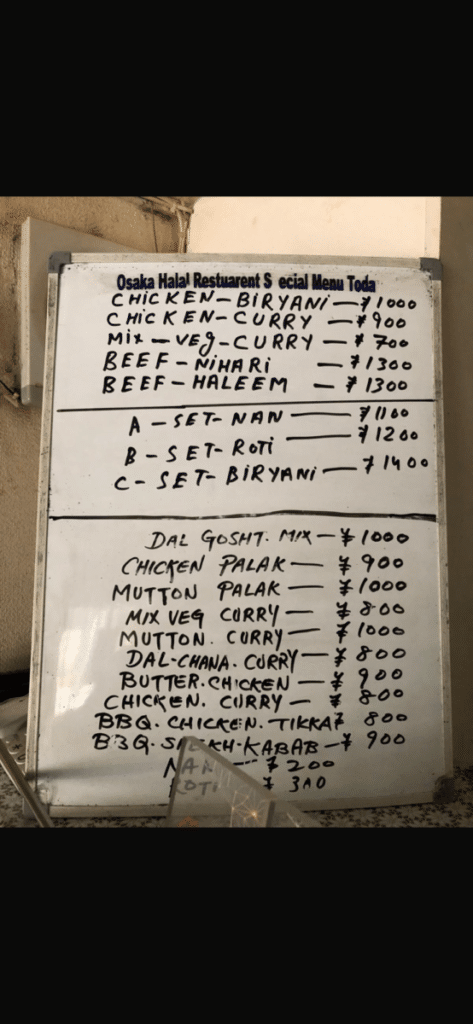 Osaka Halal Restuarent S ecial Menu Toda
CHICKEN-BIRYANI-¥1000
CHICKEN-CURRY -¥900
MIX-VEG-CURRY-¥ 700
BEEF-NIHARI -¥1300
BEEF-HALEEM -¥1300
A-SET-NAN -¥1100
B-SET-ROTI -¥1200
C-SET-BIRYANI-¥1400
DAL GOSHT. MIX-¥1000
CHICKEN PALAK-¥ 900
MUTTON PALAK-¥1000
MIX VEG CURRY-¥ 800
MUTTON. CURRY-¥1000
DAL-CHANA.CURRY-¥ 800
BUTTER.CHICKEN-¥ 900
CHICKEN. CURRY-¥ 800
BBQ.CHICKEN.TIKKA¥ 800
BBQ.SHEKH-KABAB-¥ 900
NAN ---¥200
ROTI ¥ 300